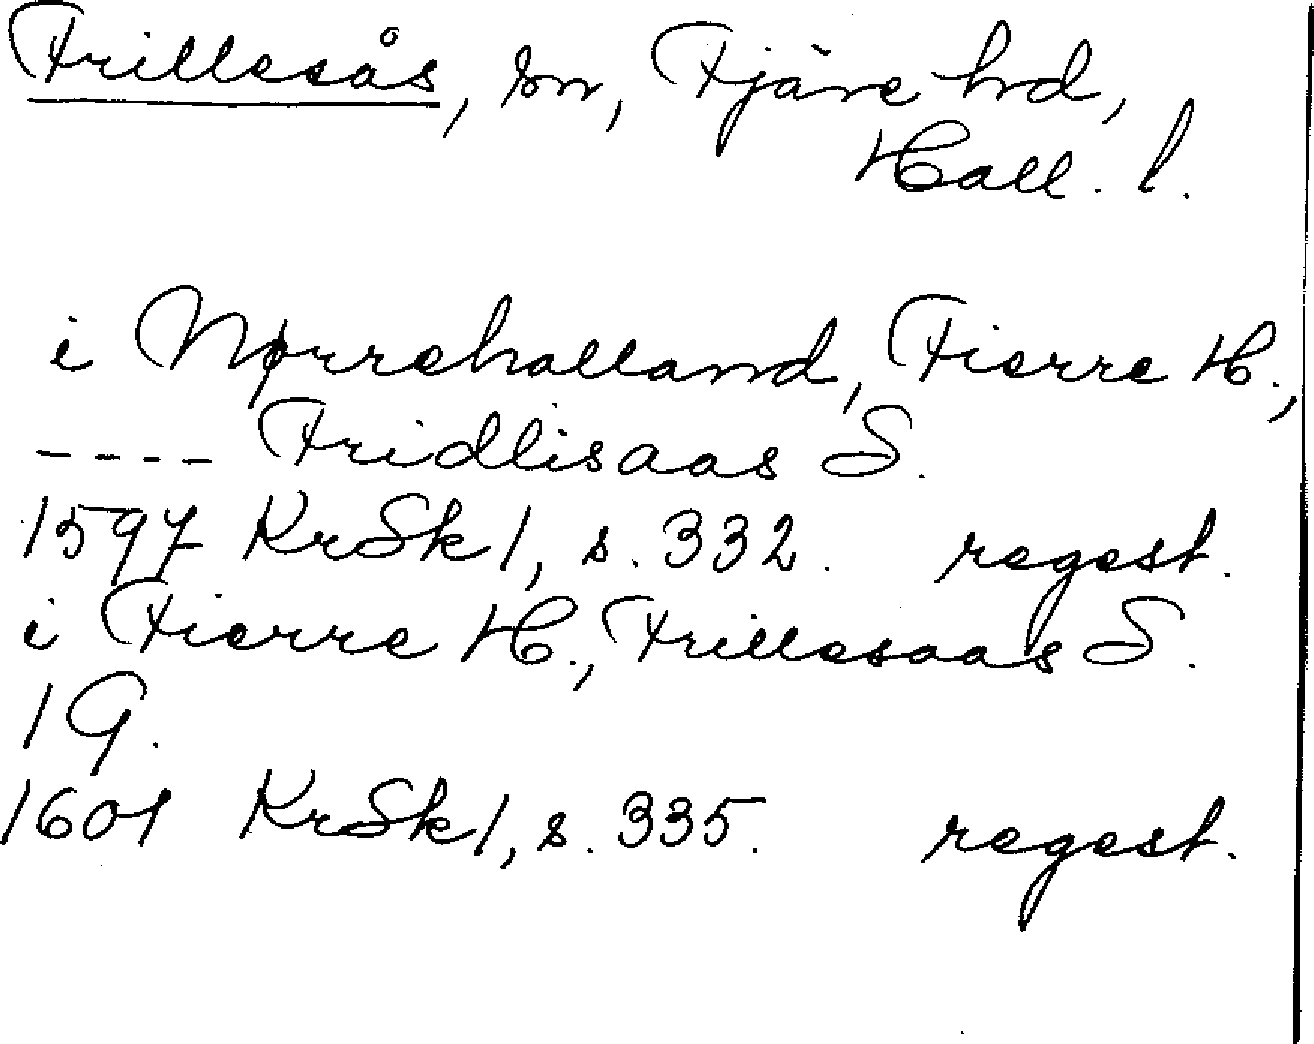 Frillesås, sn, Fjäre hd,
Hall. l.
i Nørrehalland, Fierre H.,
---- Fridlisaas S.
1597 KrSk 1, s. 332. regest.
i Fierre H., Frillesaas S.
1 G.
1601 KrSk 1, s. 335. regest.